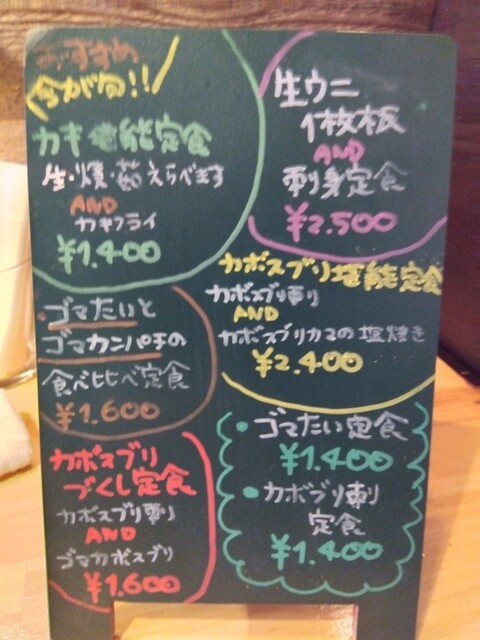 おすすめ
今が旬!!
カキ堪能定食
生・焼・茹えらべます
AND
カキフライ
¥1.400
生ウニ
1枚板
AND
刺身定食
¥2.500
カボスブリ堪能定食
カボスブリ刺り
AND
カボスブリカマの塩焼き
¥2.400
・ゴマたいと
ゴマカンパチの
食べ比べ定食
¥1.600
カボスブリ
づくし定食
カボスブリ刺り
AND
ゴマカボスブリ
¥1.600
・ゴマたい定食
¥1.400
・カボブリ刺
定食
¥1.400